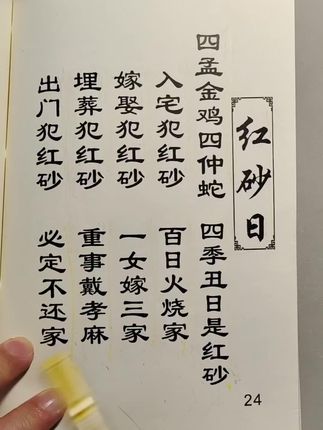 红砂日
四孟金鸡四仲蛇 四季丑日是红砂
入宅犯红砂 百日火烧家
嫁娶犯红砂 一女嫁三家
埋葬犯红砂 重事戴孝麻
出门犯红砂 必定不还家
24